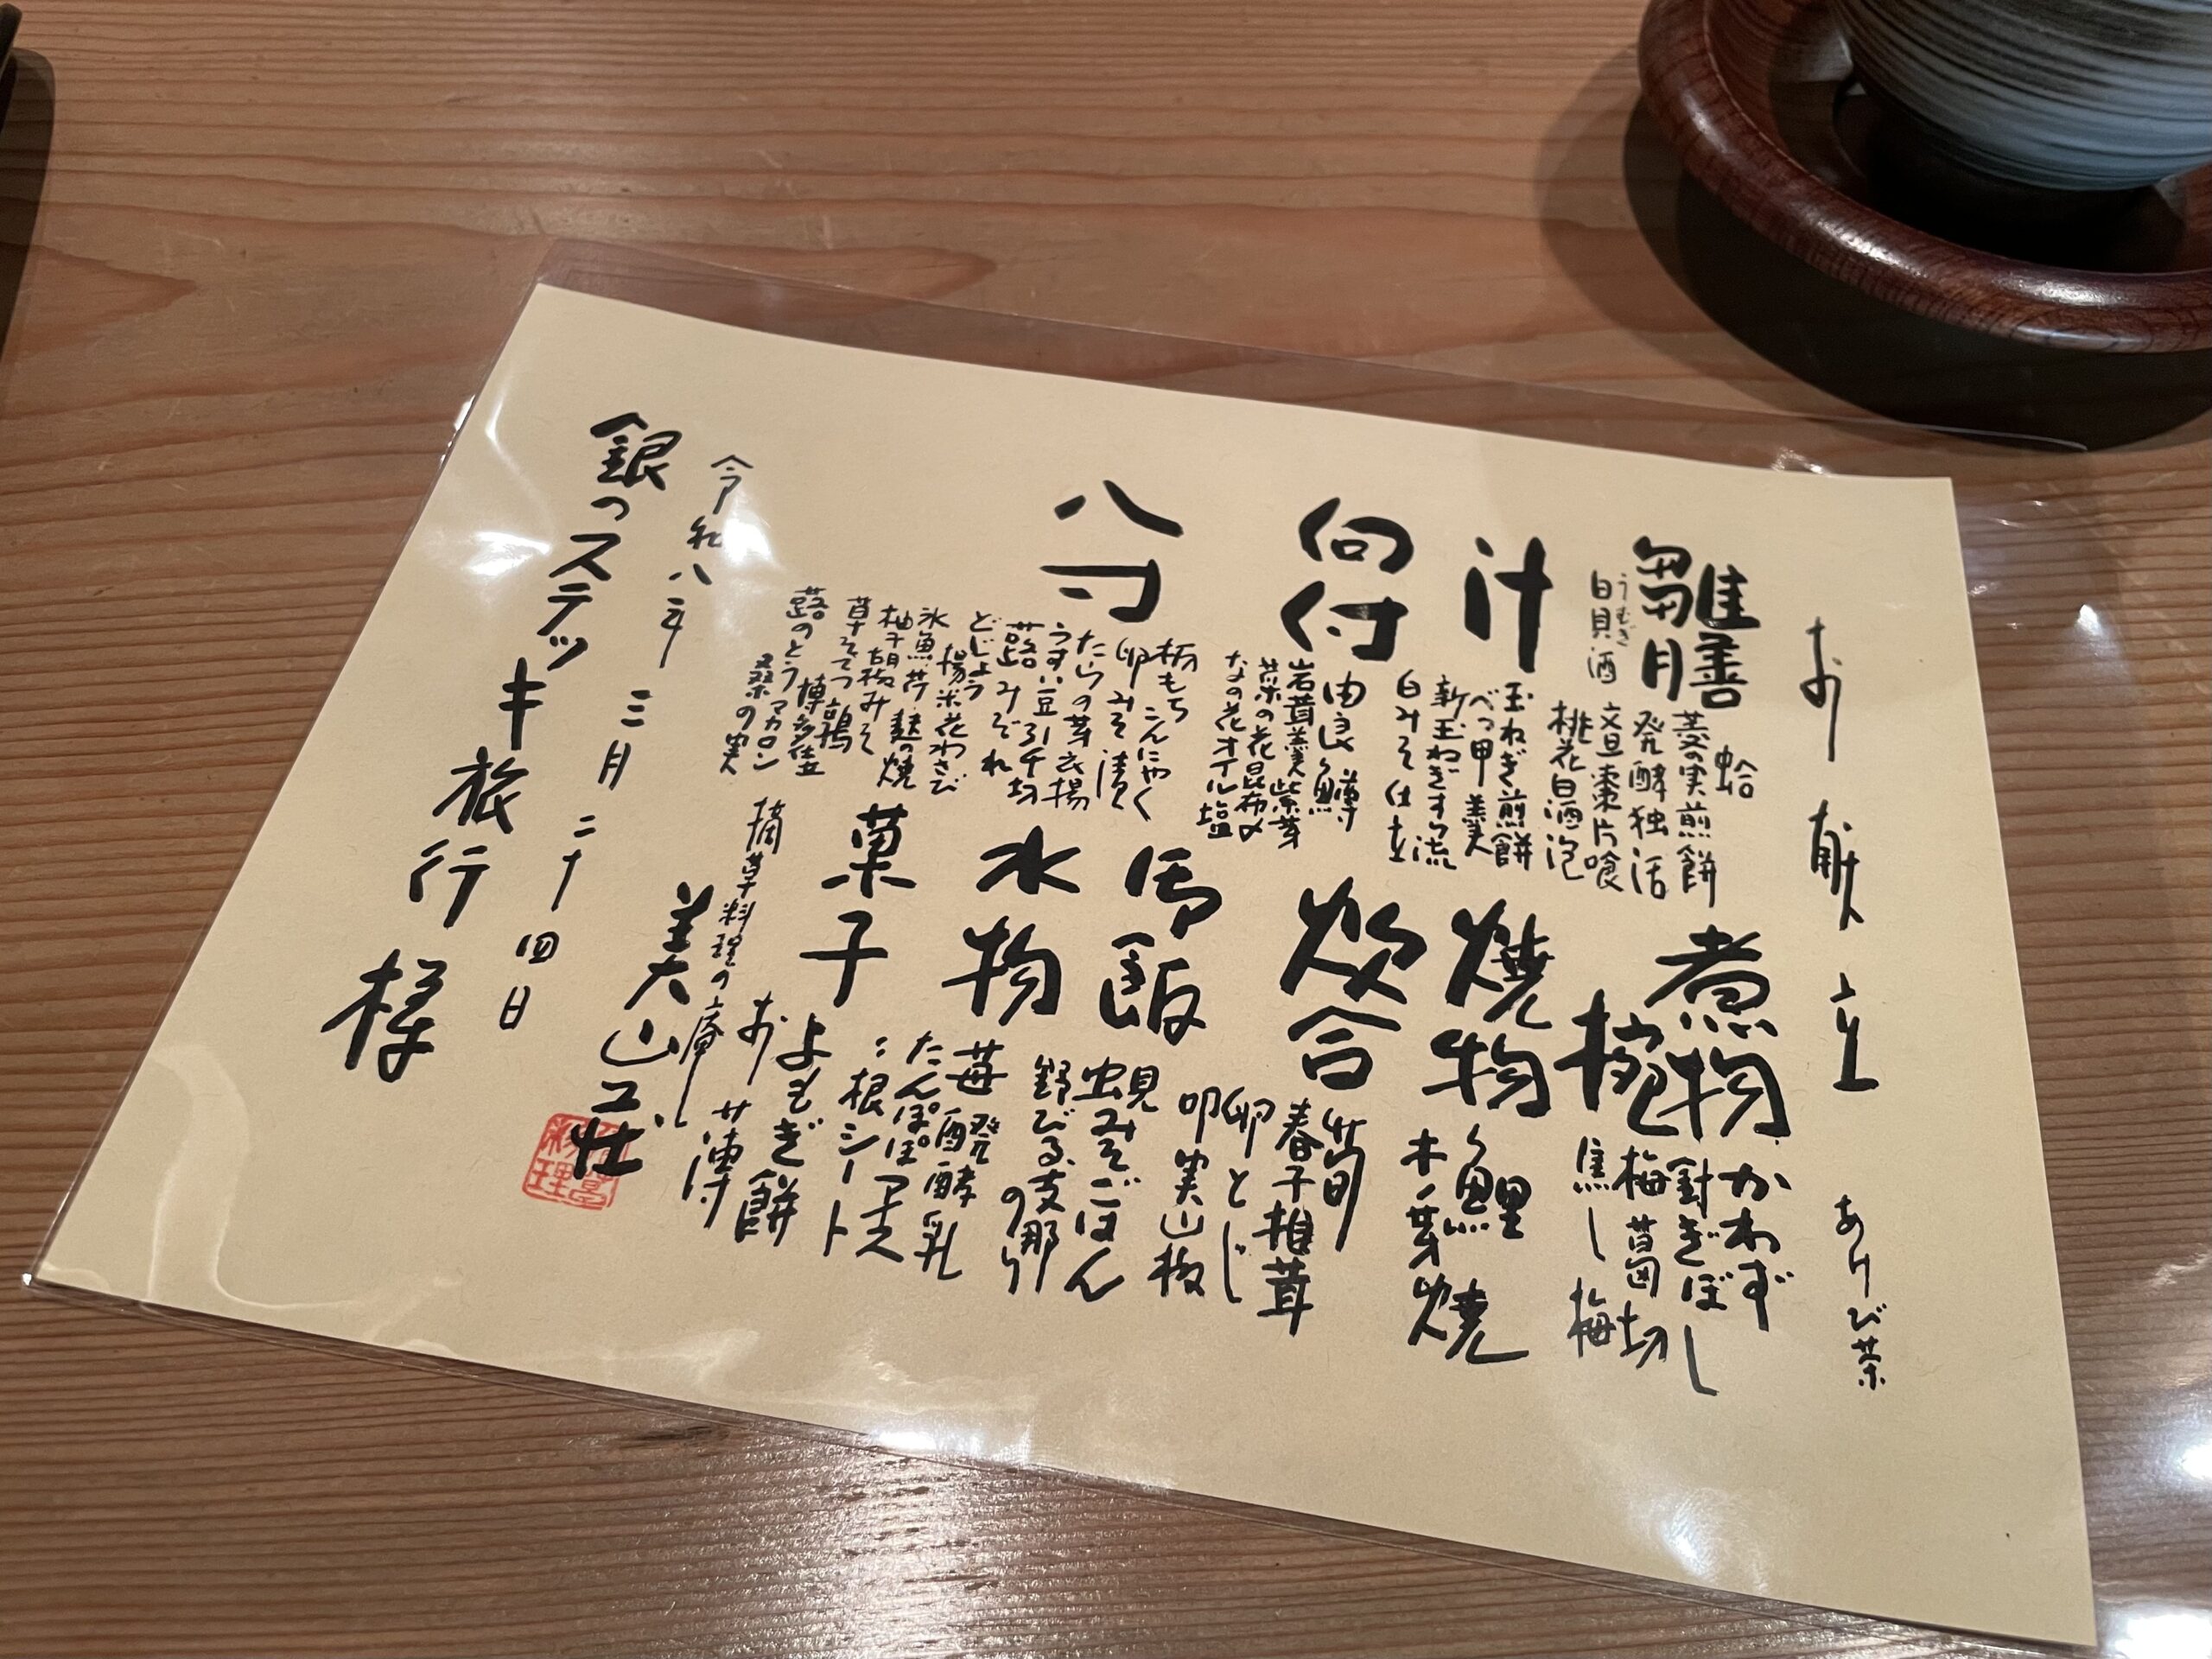 お献立
あけび茶
雛膳
蛤
菱の実煎餅
発酵独活
文旦棗片喰
桃花白酒泡
うむぎ
白貝酒
汁
玉ねぎ煎餅
べっ甲羹
新玉ねぎすり流
白みそ仕立
向付
由良鱒
岩茸羹紫芽
菜の花昆布〆
なの花オイル塩
八寸
栃もち こんにゃく
卵みそ漬
たらの芽衣揚
うすい豆引千切
蕗みぞれ
どじょう
揚米花わさび
氷魚芹麩の焼
柚子胡椒みそ
草そてつ 鶉
博多仕立
蕗のとうマカロン
桑の実
煮物椀
かわず
針ぎぼし
梅葛切
焦し梅
焼物
鯉
木ノ芽焼
炊合
筍
春子椎茸
卵とじ
叩実山椒
御飯
蜆みそごはん
野びる支那のり
水物
苺 発酵乳
たんぽぽアイス
〃根シート
菓子
よもぎ餅
お薄
摘草料理の庵
美山荘
令和八年三月二十四日
銀のステッキ旅行様